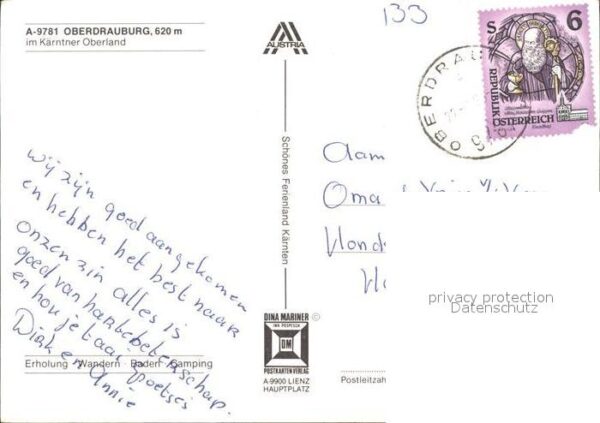 A-9781 OBERDRAUBURG, 620 m
im Kärntner Oberland
AUSTRIA
133
S 6
REPUBLIK
ÖSTERREICH
OBERDRAU
Schönes Ferienland Kärnten
Wij zijn goed aangekomen
en hebben het best naar
onzen zin alles is
goed van
en hou je taai groetjes
Dirk en Annie
Aan
Oma
Erholung Wandern Baden Camping
DINA MARINER ©
DM
POSTKARTENVERLAG
A-9900 LIENZ
HAUPTPLATZ
Postleitzah
privacy protection
Datenschutz